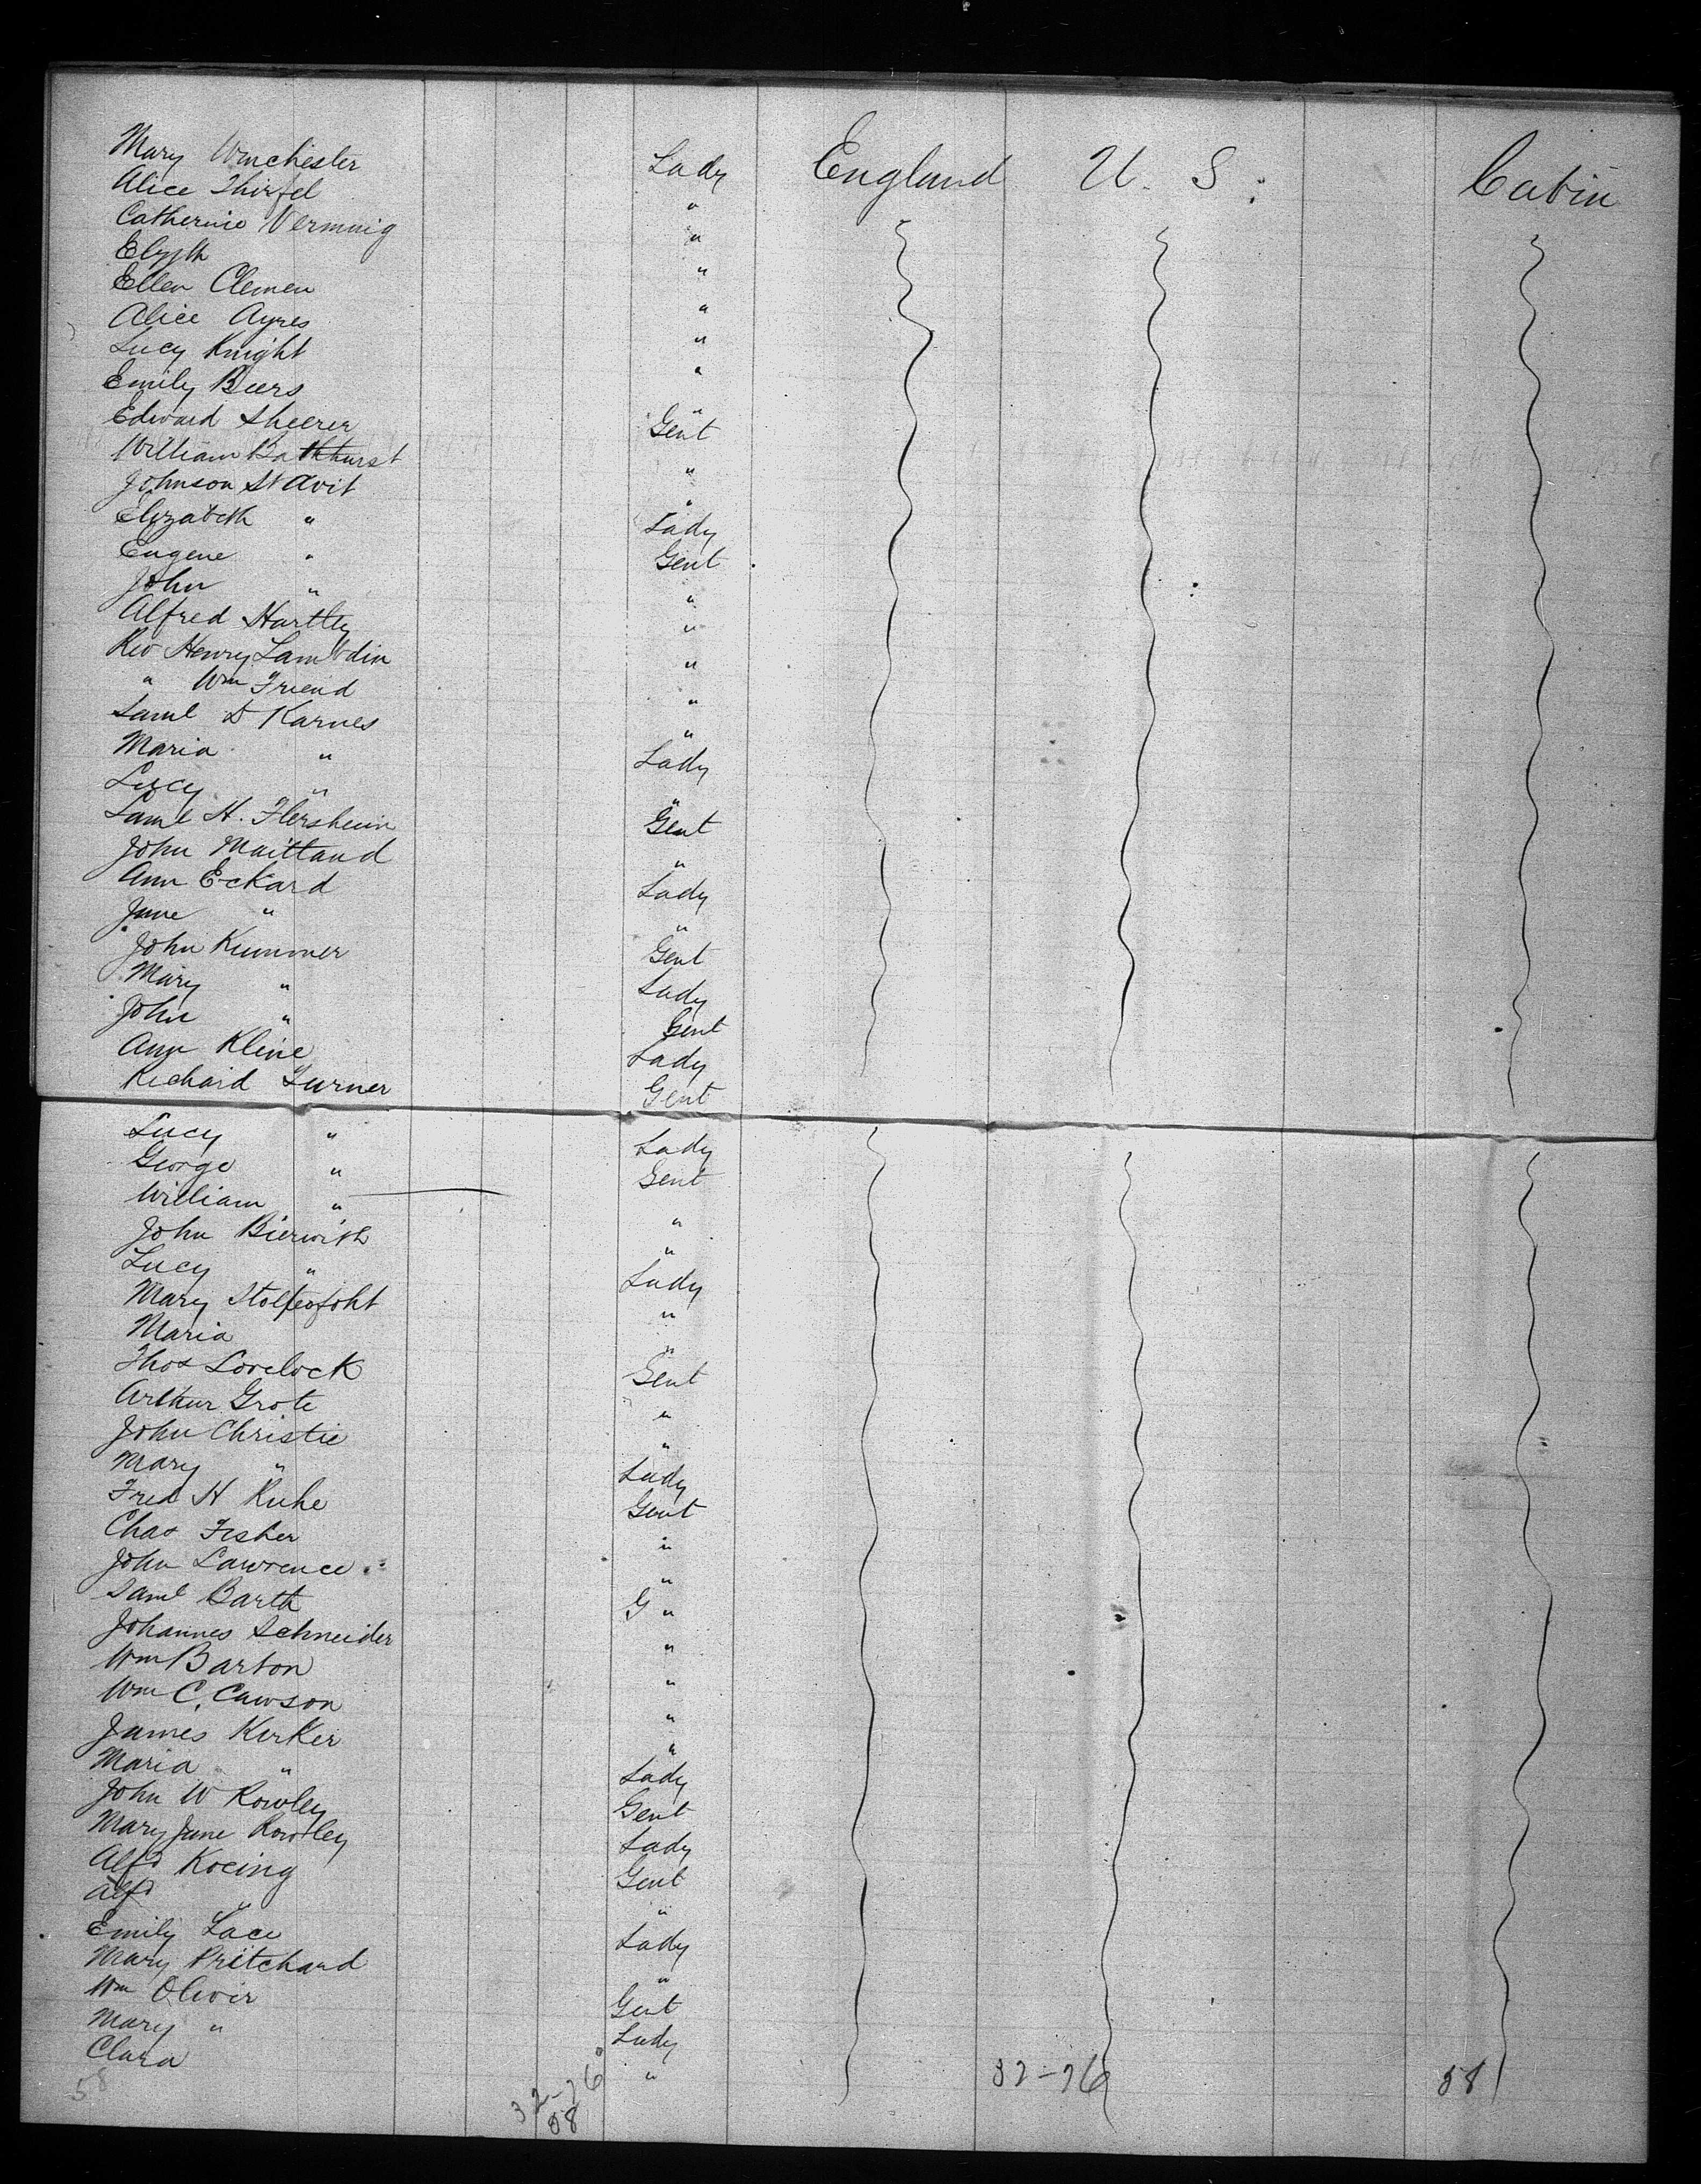 Mary Winchester Lady England U. S. Cabin
Alice Thirfel "
Catherine "
Elizth "
Ellen Clemen "
Alice Ayres "
Lucy Knight "
Emily Beers "
Edward Sheerer Gent
William Bathurst "
Johnson St Avit "
Elizabeth " Lady
Eugene " Gent
John " "
Alfred Hartley "
Rev Henry Lambdin "
" Wm Friend "
Saml D Karnes "
Maria " Lady
Lucy " "
Saml H. Flersheim Gent
John Maitland "
Ann Eckard Lady
Jane " "
John Kummer Gent
Mary " Lady
John " Gent
Ann Kline Lady
Richard Turner Gent
Lucy " Lady
George " Gent
William " "
John Bierwith "
Lucy " Lady
Mary "
Maria "
Thos Lovelock Gent
Arthur Grote "
John Christie "
Mary " Lady
Fred H Ruhe Gent
Chas Fisher "
John Lawrence "
Saml Barth G "
Johannes Schneider "
Wm Barton "
Wm C. Cawson "
James Kirker "
Maria " Lady
John W Rowley Gent
Mary Jane Rowley Lady
Alfd Koeing Gent
Alfd " "
Emily Lace Lady
Mary Pritchard "
Wm Olivir Gent
Mary " Lady
Clara "
58 32-26 58 32-26 58